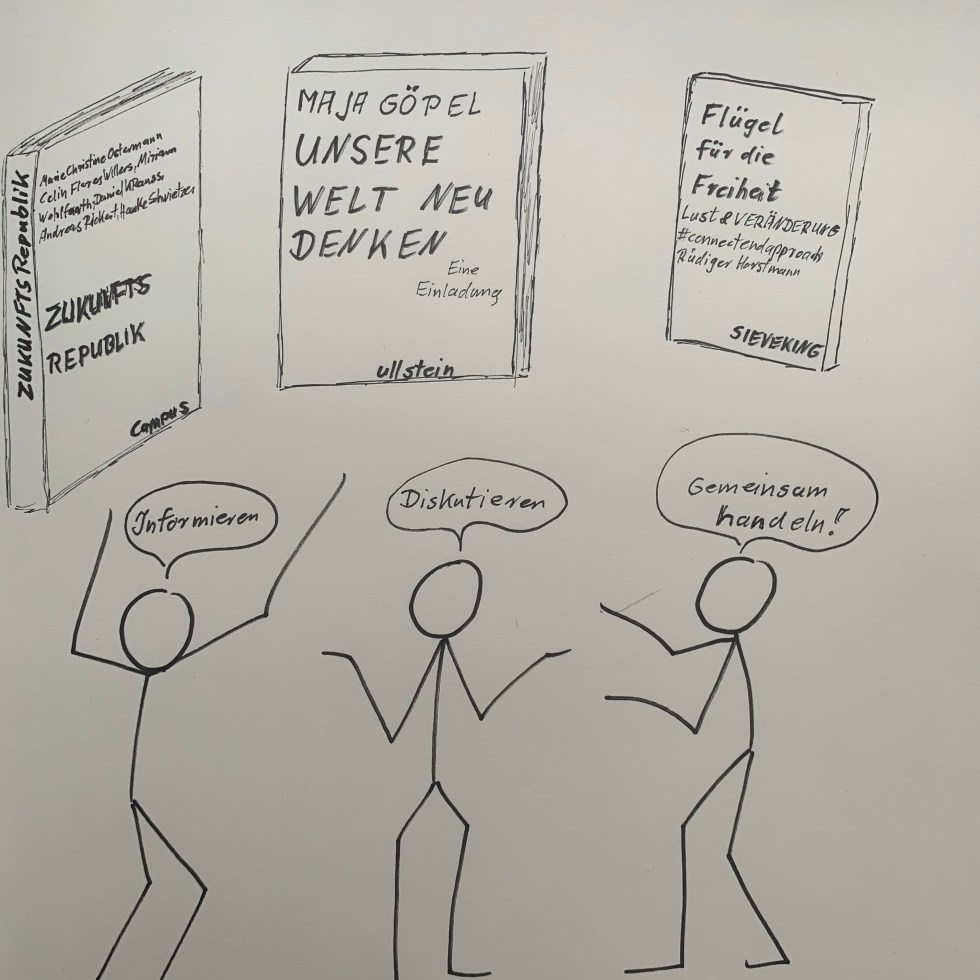 ZUKUNFTSRepublik
Marie Christine Ostermann
Celin Flores Willers, Miriam
Wohlfarth, Daniel Krauss,
Andreas Rickert, Hauke Schwiezer
ZUKUNFTS
REPUBLIK
Campus
MAJA GÖPEL
UNSERE
WELT NEU
DENKEN
Eine
Einladung
ullstein
Flügel
für die
Freiheit
Lust & VERÄNDERUNG
#connectendapproach
Rüdiger Horstmann
SIEVEKING
Informieren
Diskutieren
Gemeinsam
handeln!